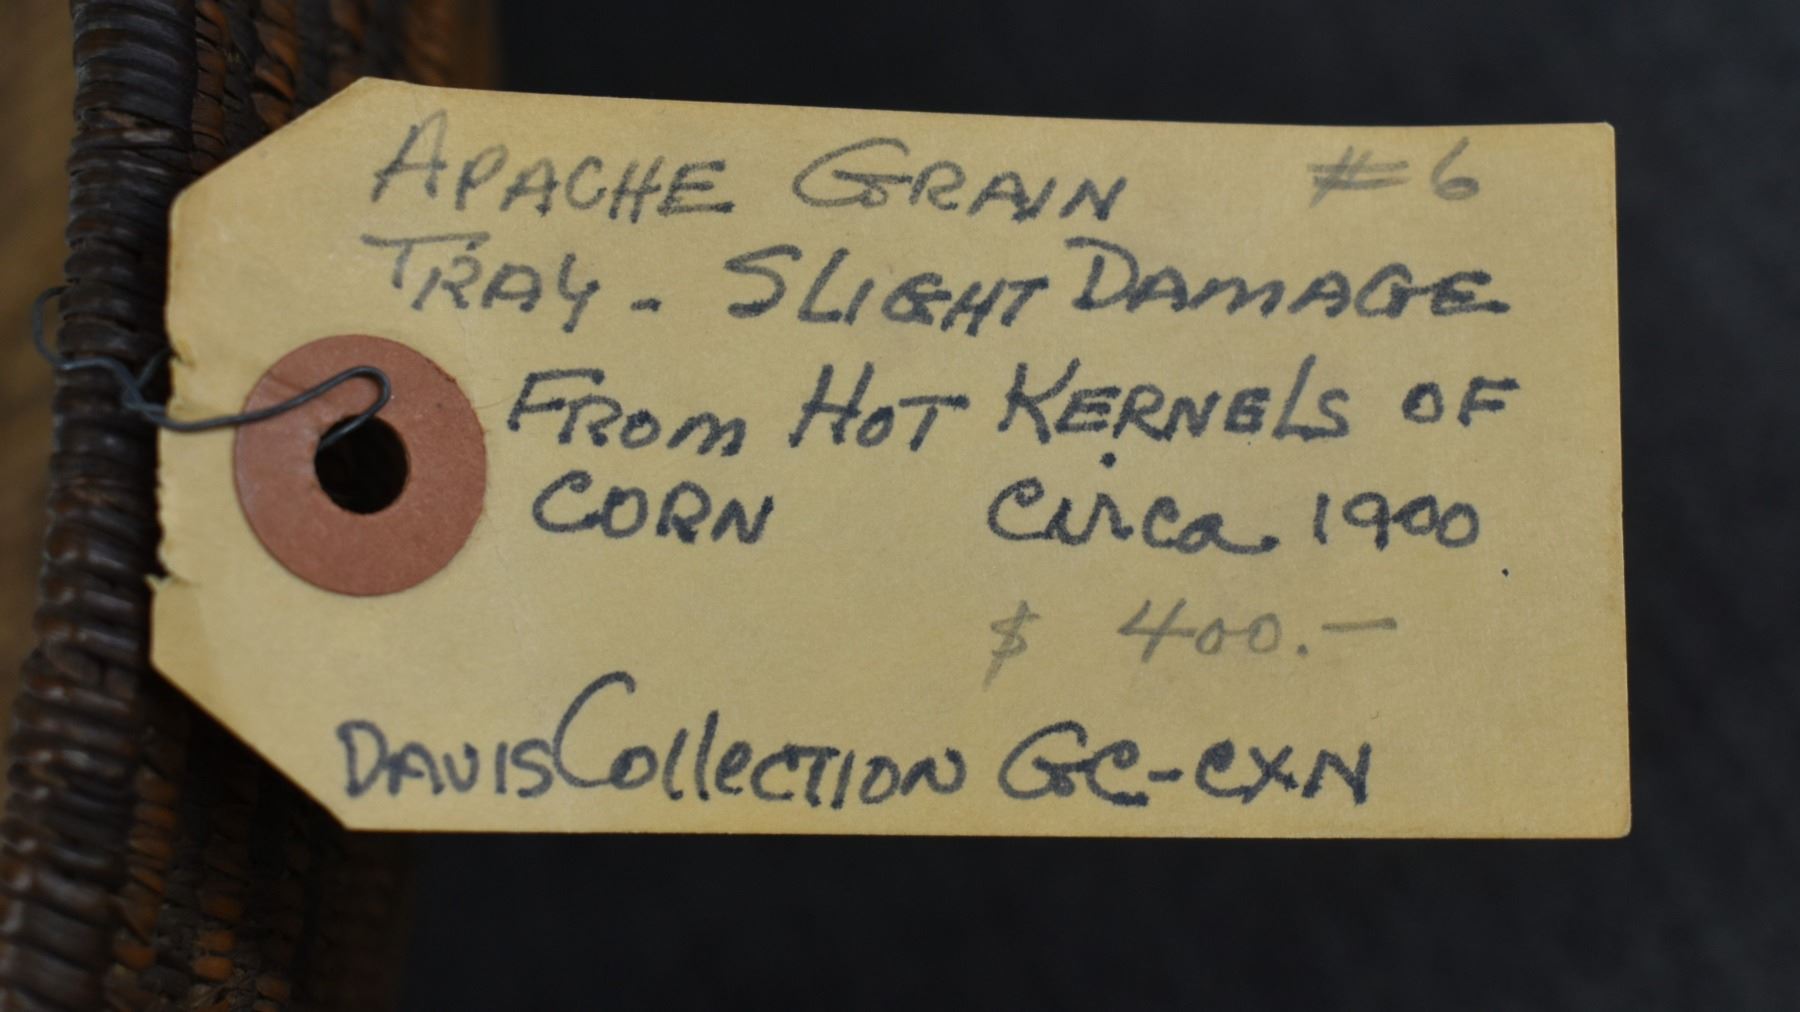 APACHE GRAIN #6
TRAY - SLIGHT DAMAGE
FROM HOT KERNELS OF
CORN Circa 1900
$ 400.—
DAVIS COllECTION GC-CXN